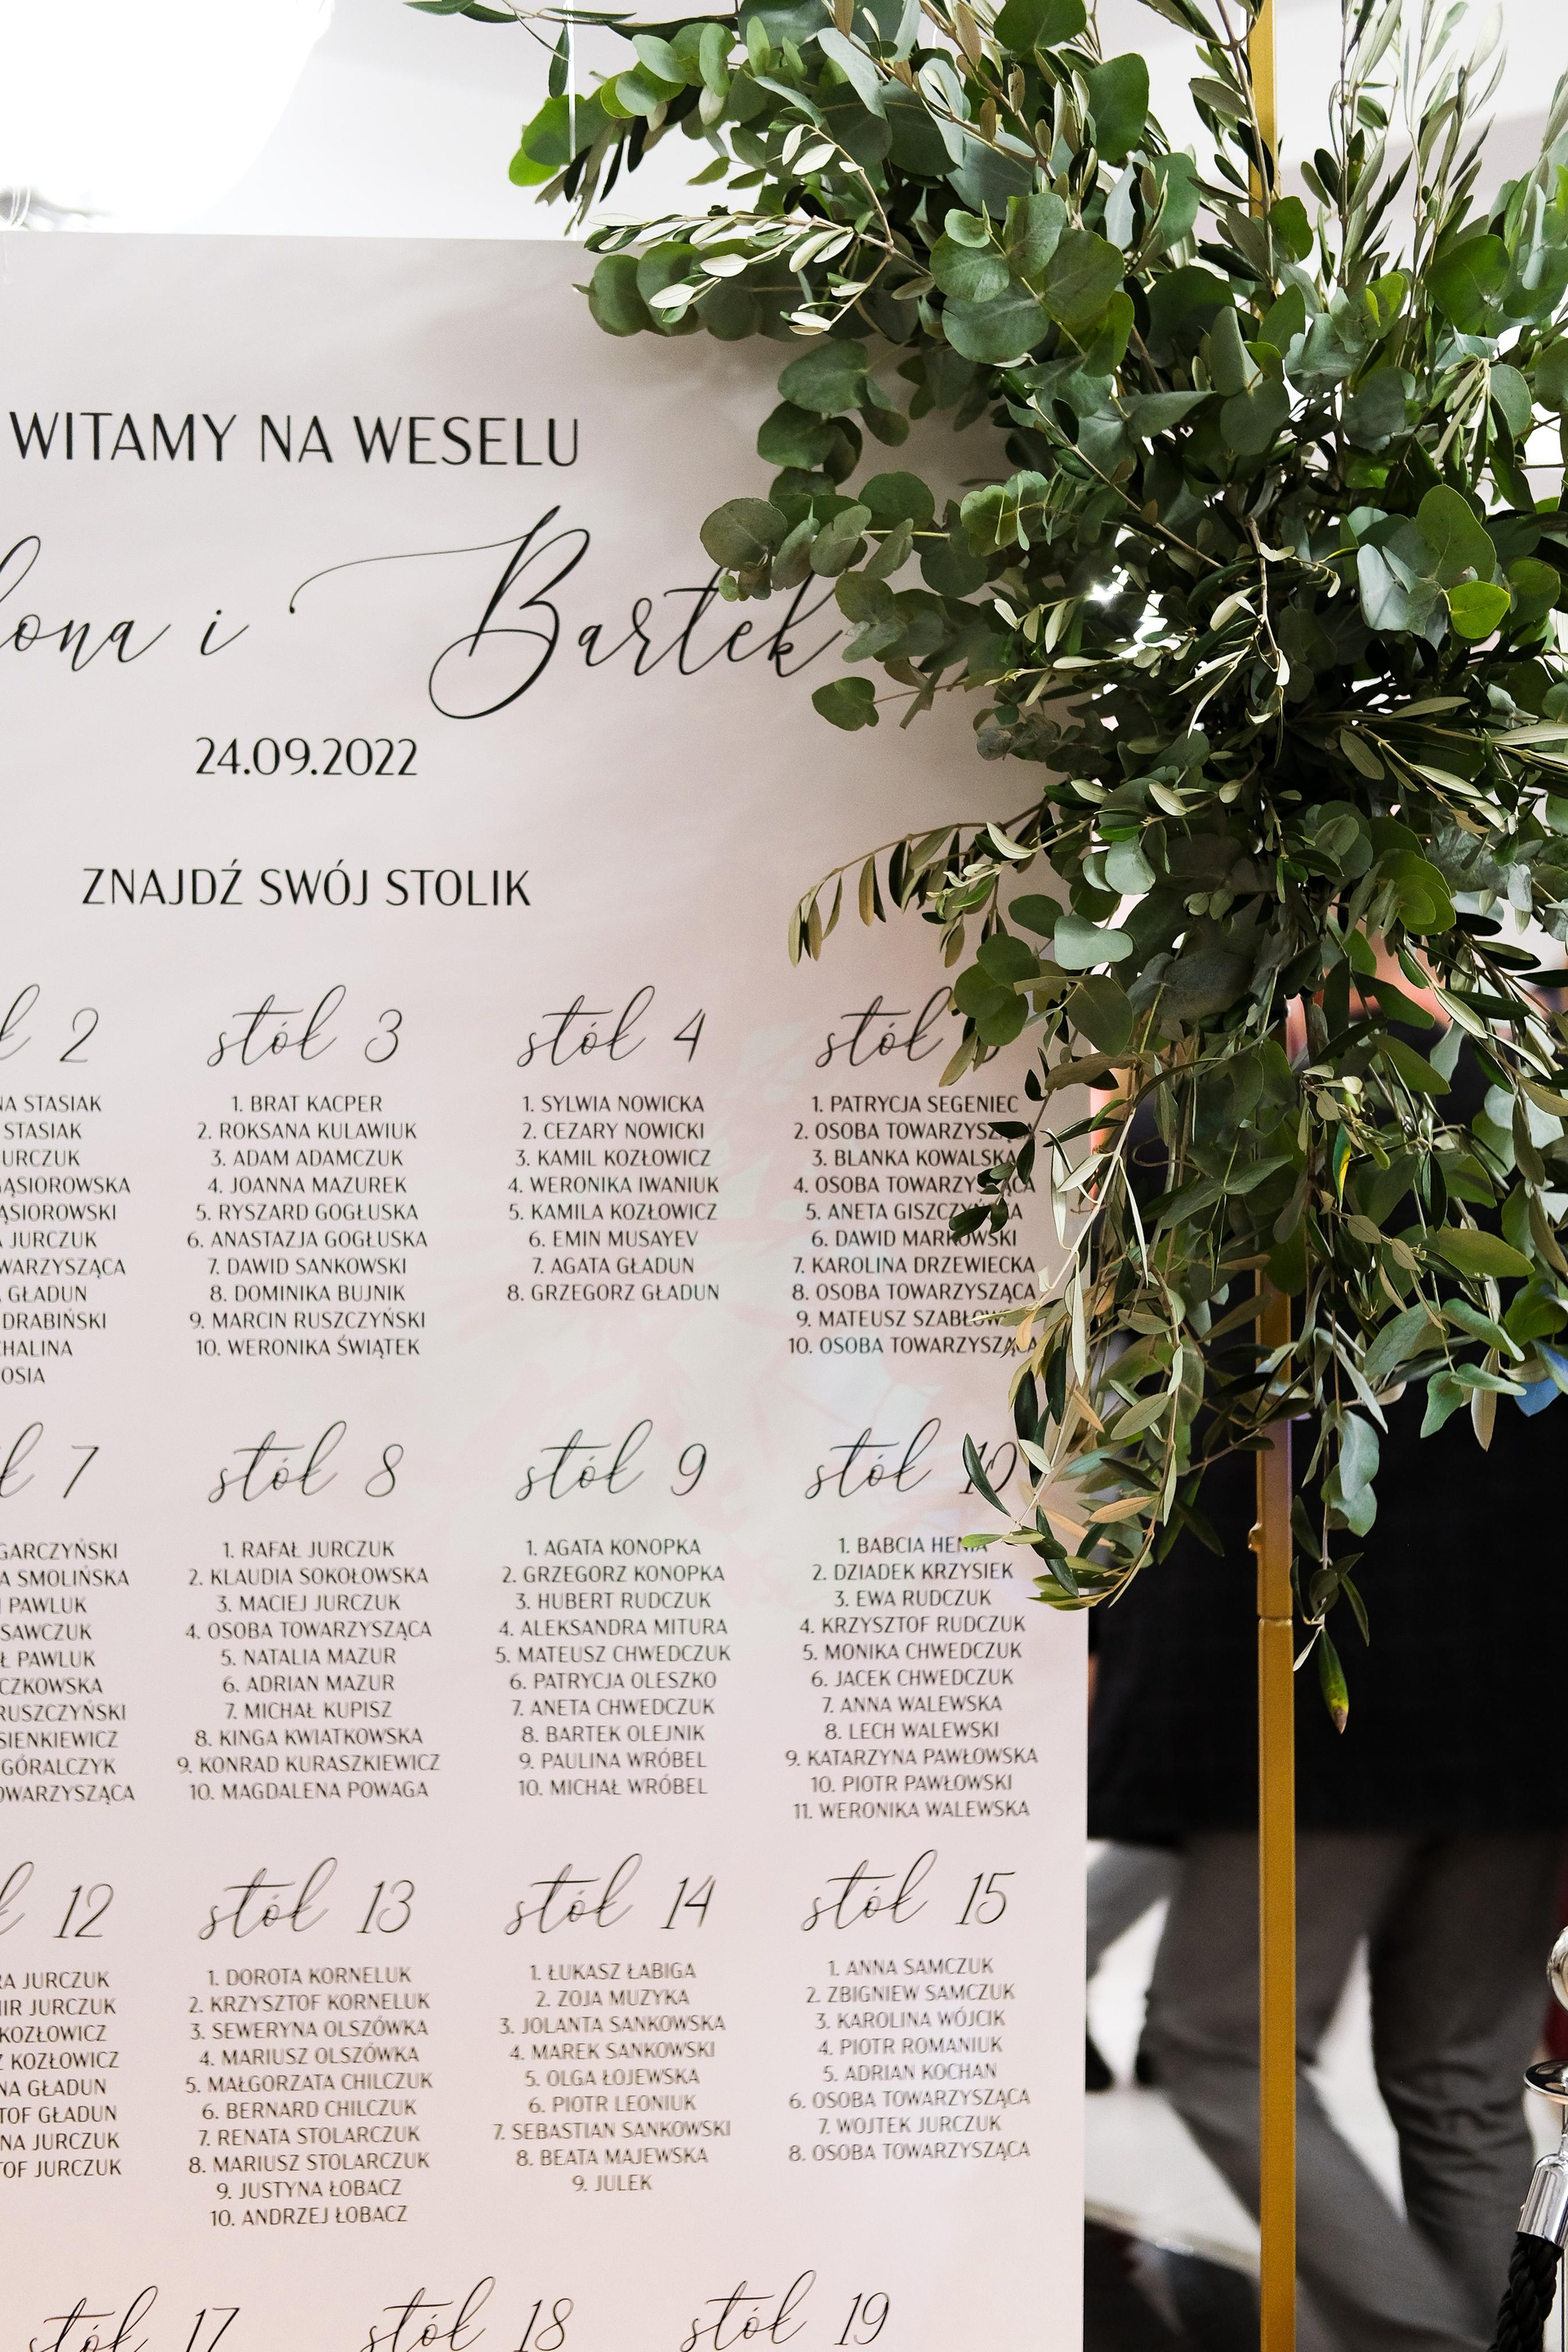 WITAMY NA WESELU
i Bartek
24.09.2022
ZNAJDŹ SWÓJ STOLIK
2
STASIAK
STASIAK
JURCZUK
GŁADUN
DRABIŃSKI
stół 3
1. BRAT KACPER
2. ROKSANA KULAWIUK
3. ADAM ADAMCZUK
4. JOANNA MAZUREK
5. RYSZARD GOGŁUSKA
6. ANASTAZJA GOGŁUSKA
7. DAWID SANKOWSKI
8. DOMINIKA BUJNIK
9. MARCIN RUSZCZYŃSKI
10. WERONIKA ŚWIĄTEK
stół 4
1. SYLWIA NOWICKA
2. CEZARY NOWICKI
3. KAMIL KOZŁOWICZ
4. WERONIKA IWANIUK
5. KAMILA KOZŁOWICZ
6. EMIN MUSAYEV
7. AGATA GŁADUN
8. GRZEGORZ GŁADUN
stół
1. PATRYCJA SEGENIEC
2. OSOBA TOWARZYSZĄCA
3. BLANKA KOWALSKA
4. OSOBA TOWARZYSZĄCA
5. ANETA
6. DAWID MARKOWSKI
7. KAROLINA DRZEWIECKA
8. OSOBA TOWARZYSZĄCA
9. MATEUSZ
10. OSOBA TOWARZYSZĄCA
7
GARCZYŃSKI
SMOLIŃSKA
PAWLUK
SAWCZUK
PAWLUK
RUSZCZYŃSKI
SIENKIEWICZ
GÓRALCZYK
stół 8
1. RAFAŁ JURCZUK
2. KLAUDIA SOKOŁOWSKA
3. MACIEJ JURCZUK
4. OSOBA TOWARZYSZĄCA
5. NATALIA MAZUR
6. ADRIAN MAZUR
7. MICHAŁ KUPISZ
8. KINGA KWIATKOWSKA
9. KONRAD KURASZKIEWICZ
10. MAGDALENA POWAGA
stół 9
1. AGATA KONOPKA
2. GRZEGORZ KONOPKA
3. HUBERT RUDCZUK
4. ALEKSANDRA MITURA
5. MATEUSZ CHWEDCZUK
6. PATRYCJA OLESZKO
7. ANETA CHWEDCZUK
8. BARTEK OLEJNIK
9. PAULINA WRÓBEL
10. MICHAŁ WRÓBEL
stół 10
1. BABCIA HENIA
2. DZIADEK KRZYSIEK
3. EWA RUDCZUK
4. KRZYSZTOF RUDCZUK
5. MONIKA CHWEDCZUK
6. JACEK CHWEDCZUK
7. ANNA WALEWSKA
8. LECH WALEWSKI
9. KATARZYNA PAWŁOWSKA
10. PIOTR PAWŁOWSKI
11. WERONIKA WALEWSKA
12
JURCZUK
JURCZUK
KOZŁOWICZ
KOZŁOWICZ
GŁADUN
GŁADUN
JURCZUK
JURCZUK
stół 13
1. DOROTA KORNELUK
2. KRZYSZTOF KORNELUK
3. SEWERYNA OLSZÓWKA
4. MARIUSZ OLSZÓWKA
5. MAŁGORZATA CHILCZUK
6. BERNARD CHILCZUK
7. RENATA STOLARCZUK
8. MARIUSZ STOLARCZUK
9. JUSTYNA ŁOBACZ
10. ANDRZEJ ŁOBACZ
stół 14
1. ŁUKASZ ŁABIGA
2. ZOJA MUZYKA
3. JOLANTA SANKOWSKA
4. MAREK SANKOWSKI
5. OLGA ŁOJEWSKA
6. PIOTR LEONIUK
7. SEBASTIAN SANKOWSKI
8. BEATA MAJEWSKA
9. JULEK
stół 15
1. ANNA SAMCZUK
2. ZBIGNIEW SAMCZUK
3. KAROLINA WÓJCIK
4. PIOTR ROMANIUK
5. ADRIAN KOCHAN
6. OSOBA TOWARZYSZĄCA
7. WOJTEK JURCZUK
8. OSOBA TOWARZYSZĄCA
stół 17
stół 18
stół 19